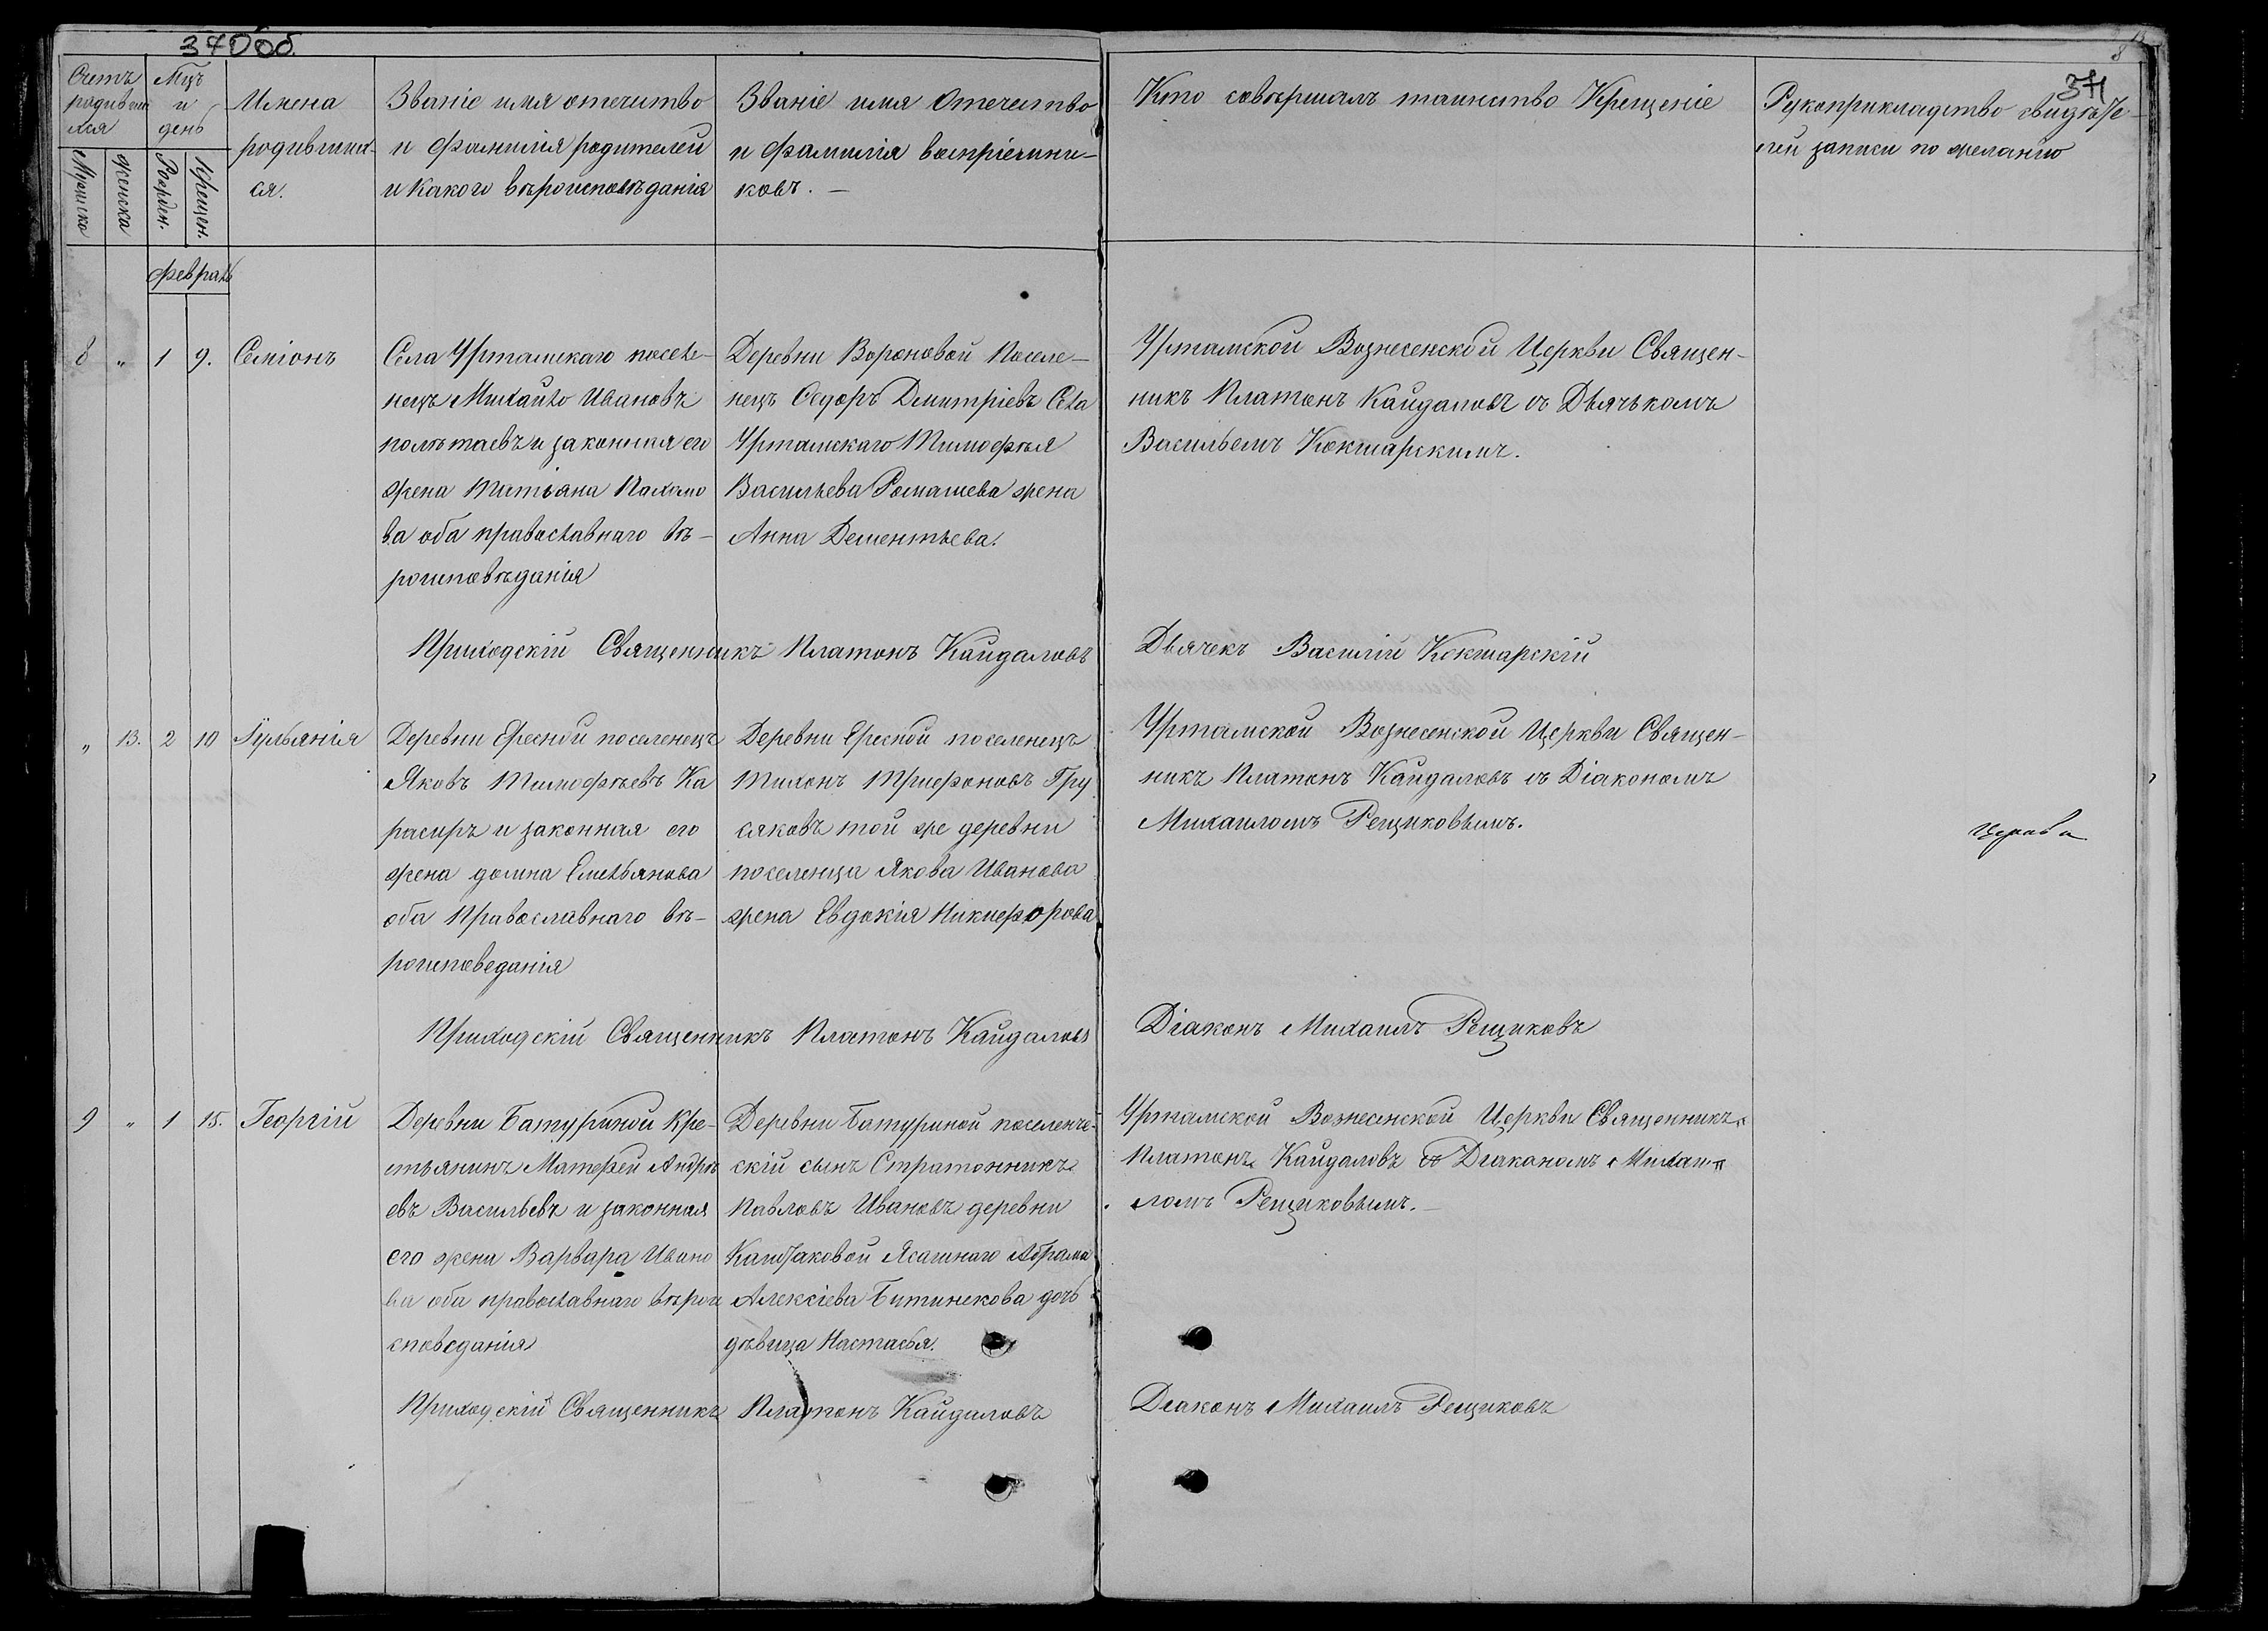 370об.
371
8
Счетъ родившихся
Мцъ и день
Имена родившихся.
Званіе имя отечество
и фамилія родителей
и какого вѣроисповѣданія
Званіе имя Отечество
и фамилія воспріемни-
ковъ. —
Кто совершалъ таинство Крещеніе
Рукоприкладство свидѣте-
лей записи по желанію
Мужска
женска
Рожден.
Крещен.
февраль
8 „ 1 9. Семіонъ
Села Уртамскаго поселе-
нецъ Михайло Ивановъ
полѣтаевъ и законная его
жена Татьяна Пахомо
ва оба православнаго вѣ-
роисповѣданія
Деревни Вороновой Поселе-
нецъ Ѳедоръ Дмитріевъ Села
Уртамскаго Тимофѣя
Васильева Ромашева жена
Анна Дементьева.
Уртамской Вознесенской Церкви Священ-
никъ Платонъ Кайдаловъ съ Дьячькомъ
Васильемъ Кокшарскимъ.
Приходскій Священникъ Платонъ Кайдаловъ
Дьячекъ Василій Кокшарскій
„ 13. 2 10 Іульянія
Деревни Ересной поселенецъ
Яковъ Тимофѣевъ Ка
расиръ и законная его
жена домна Емельянова
оба Православнаго вѣ-
роисповеданія
Деревни Ересной поселенецъ
Тихонъ Трифоновъ Гру
сяковъ той же деревни
поселенца Якова Иванова
жена Евдокія Никифорова
Уртамской Вознесенской Церкви Священ-
никъ Платонъ Кайдаловъ съ Діакономъ
Михаиломъ Рещиковымъ.
Приходскій Священникъ Платонъ Кайдаловъ
Діаконъ Михаилъ Рещиковъ
9 „ 1 15. Георгій
Деревни Батуриной Кре-
стьянинъ Матфей Андре
евъ Васильевъ и законная
его жена Варвара Ивано
ва оба православнаго вѣрои
споведанія
Деревни Батуриной поселенче-
скій сынъ Стратонникъ
Павловъ Ивановъ деревни
Ясашнаго Абрама
Алексіева дочь
дѣвица Настасья.
Уртамской Вознесенской Церкви Священникъ
Платонъ Кайдаловъ со Діакономъ Михаи
ломъ Рещиковымъ. —
Приходскій Священникъ Платонъ Кайдаловъ
Діаконъ Михаилъ Рещиковъ